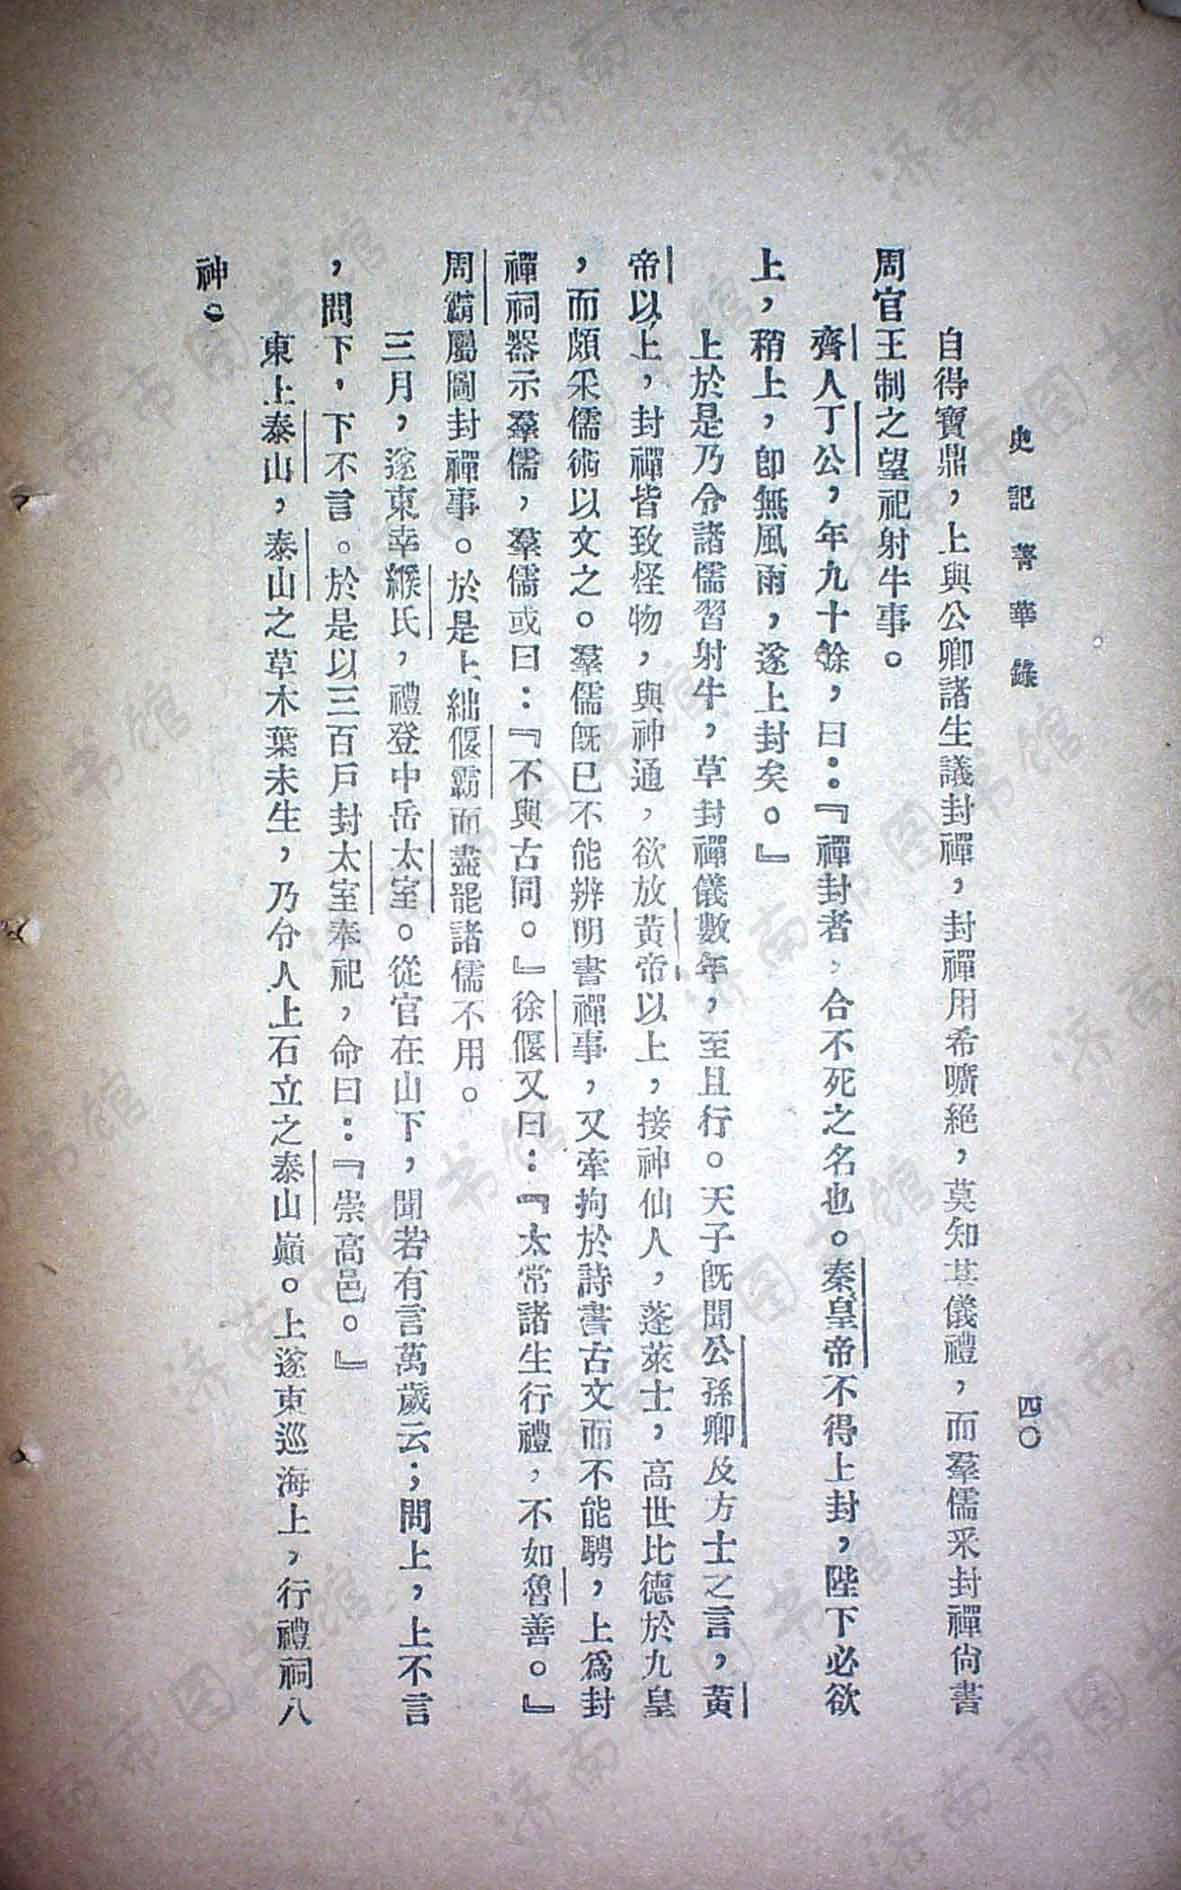 史記菁華錄
四〇
自得寶鼎，上與公卿諸生議封禪，封禪用希曠絕，莫知其儀禮，而羣儒采封禪尙書
周官王制之望祀射牛事。
齊人丁公，年九十餘，曰：『禪封者，合不死之名也。秦皇帝不得上封，陛下必欲
上，稍上，卽無風雨，遂上封矣。』
上於是乃令諸儒習射牛，草封禪儀數年，至且行。天子旣聞公孫卿及方士之言，黃
帝以上，封禪皆致怪物，與神通，欲放黃帝以上，接神仙人，蓬萊士，高世比德於九皇
，而頗采儒術以文之。羣儒旣已不能辨明書禪事，又牽拘於詩書古文而不能騁，上爲封
禪祠器示羣儒，羣儒或曰：『不與古同。』徐偃又曰：『太常諸生行禮，不如魯善。』
周霸屬圖封禪事。於是上絀偃霸而盡罷諸儒不用。
三月，遂東幸緱氏，禮登中岳太室。從官在山下，聞若有言萬歲云；問上，上不言
，問下，下不言。於是以三百戶封太室奉祀，命曰：『崇高邑。』
東上泰山，泰山之草木葉未生，乃令人上石立之泰山巔。上遂東巡海上，行禮祠八
神。
济南市图书馆